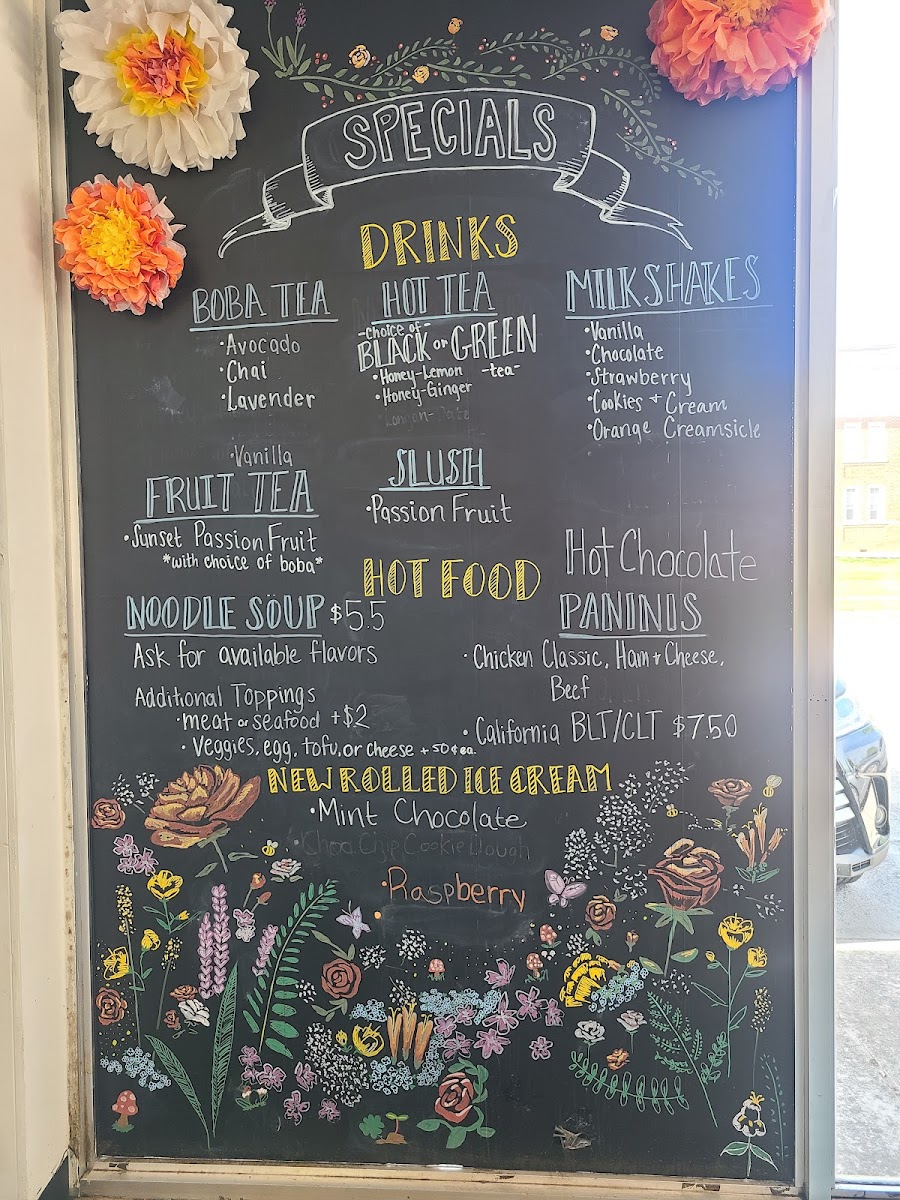 SPECIALS
DRINKS
BOBA TEA
·Avocado
·Chai
·Lavender
·Vanilla
HOT TEA
-choice of-
BLACK or GREEN
-tea-
·Honey-Lemon
·Honey-Ginger
MILKSHAKES
·Vanilla
·Chocolate
·Strawberry
·Cookies + Cream
·Orange Creamsicle
FRUIT TEA
·Sunset Passion Fruit
*with choice of boba*
SLUSH
·Passion Fruit
Hot Chocolate
HOT FOOD
NOODLE SOUP $5.5
Ask for available flavors
Additional Toppings
·meat or seafood +$2
·Veggies, egg, tofu, or cheese +50¢ea.
PANINIS
·Chicken Classic, Ham + Cheese,
Beef
·California BLT/CLT $7.50
NEW ROLLED ICE CREAM
·Mint Chocolate
Choc Chip Cookie Dough
·Raspberry